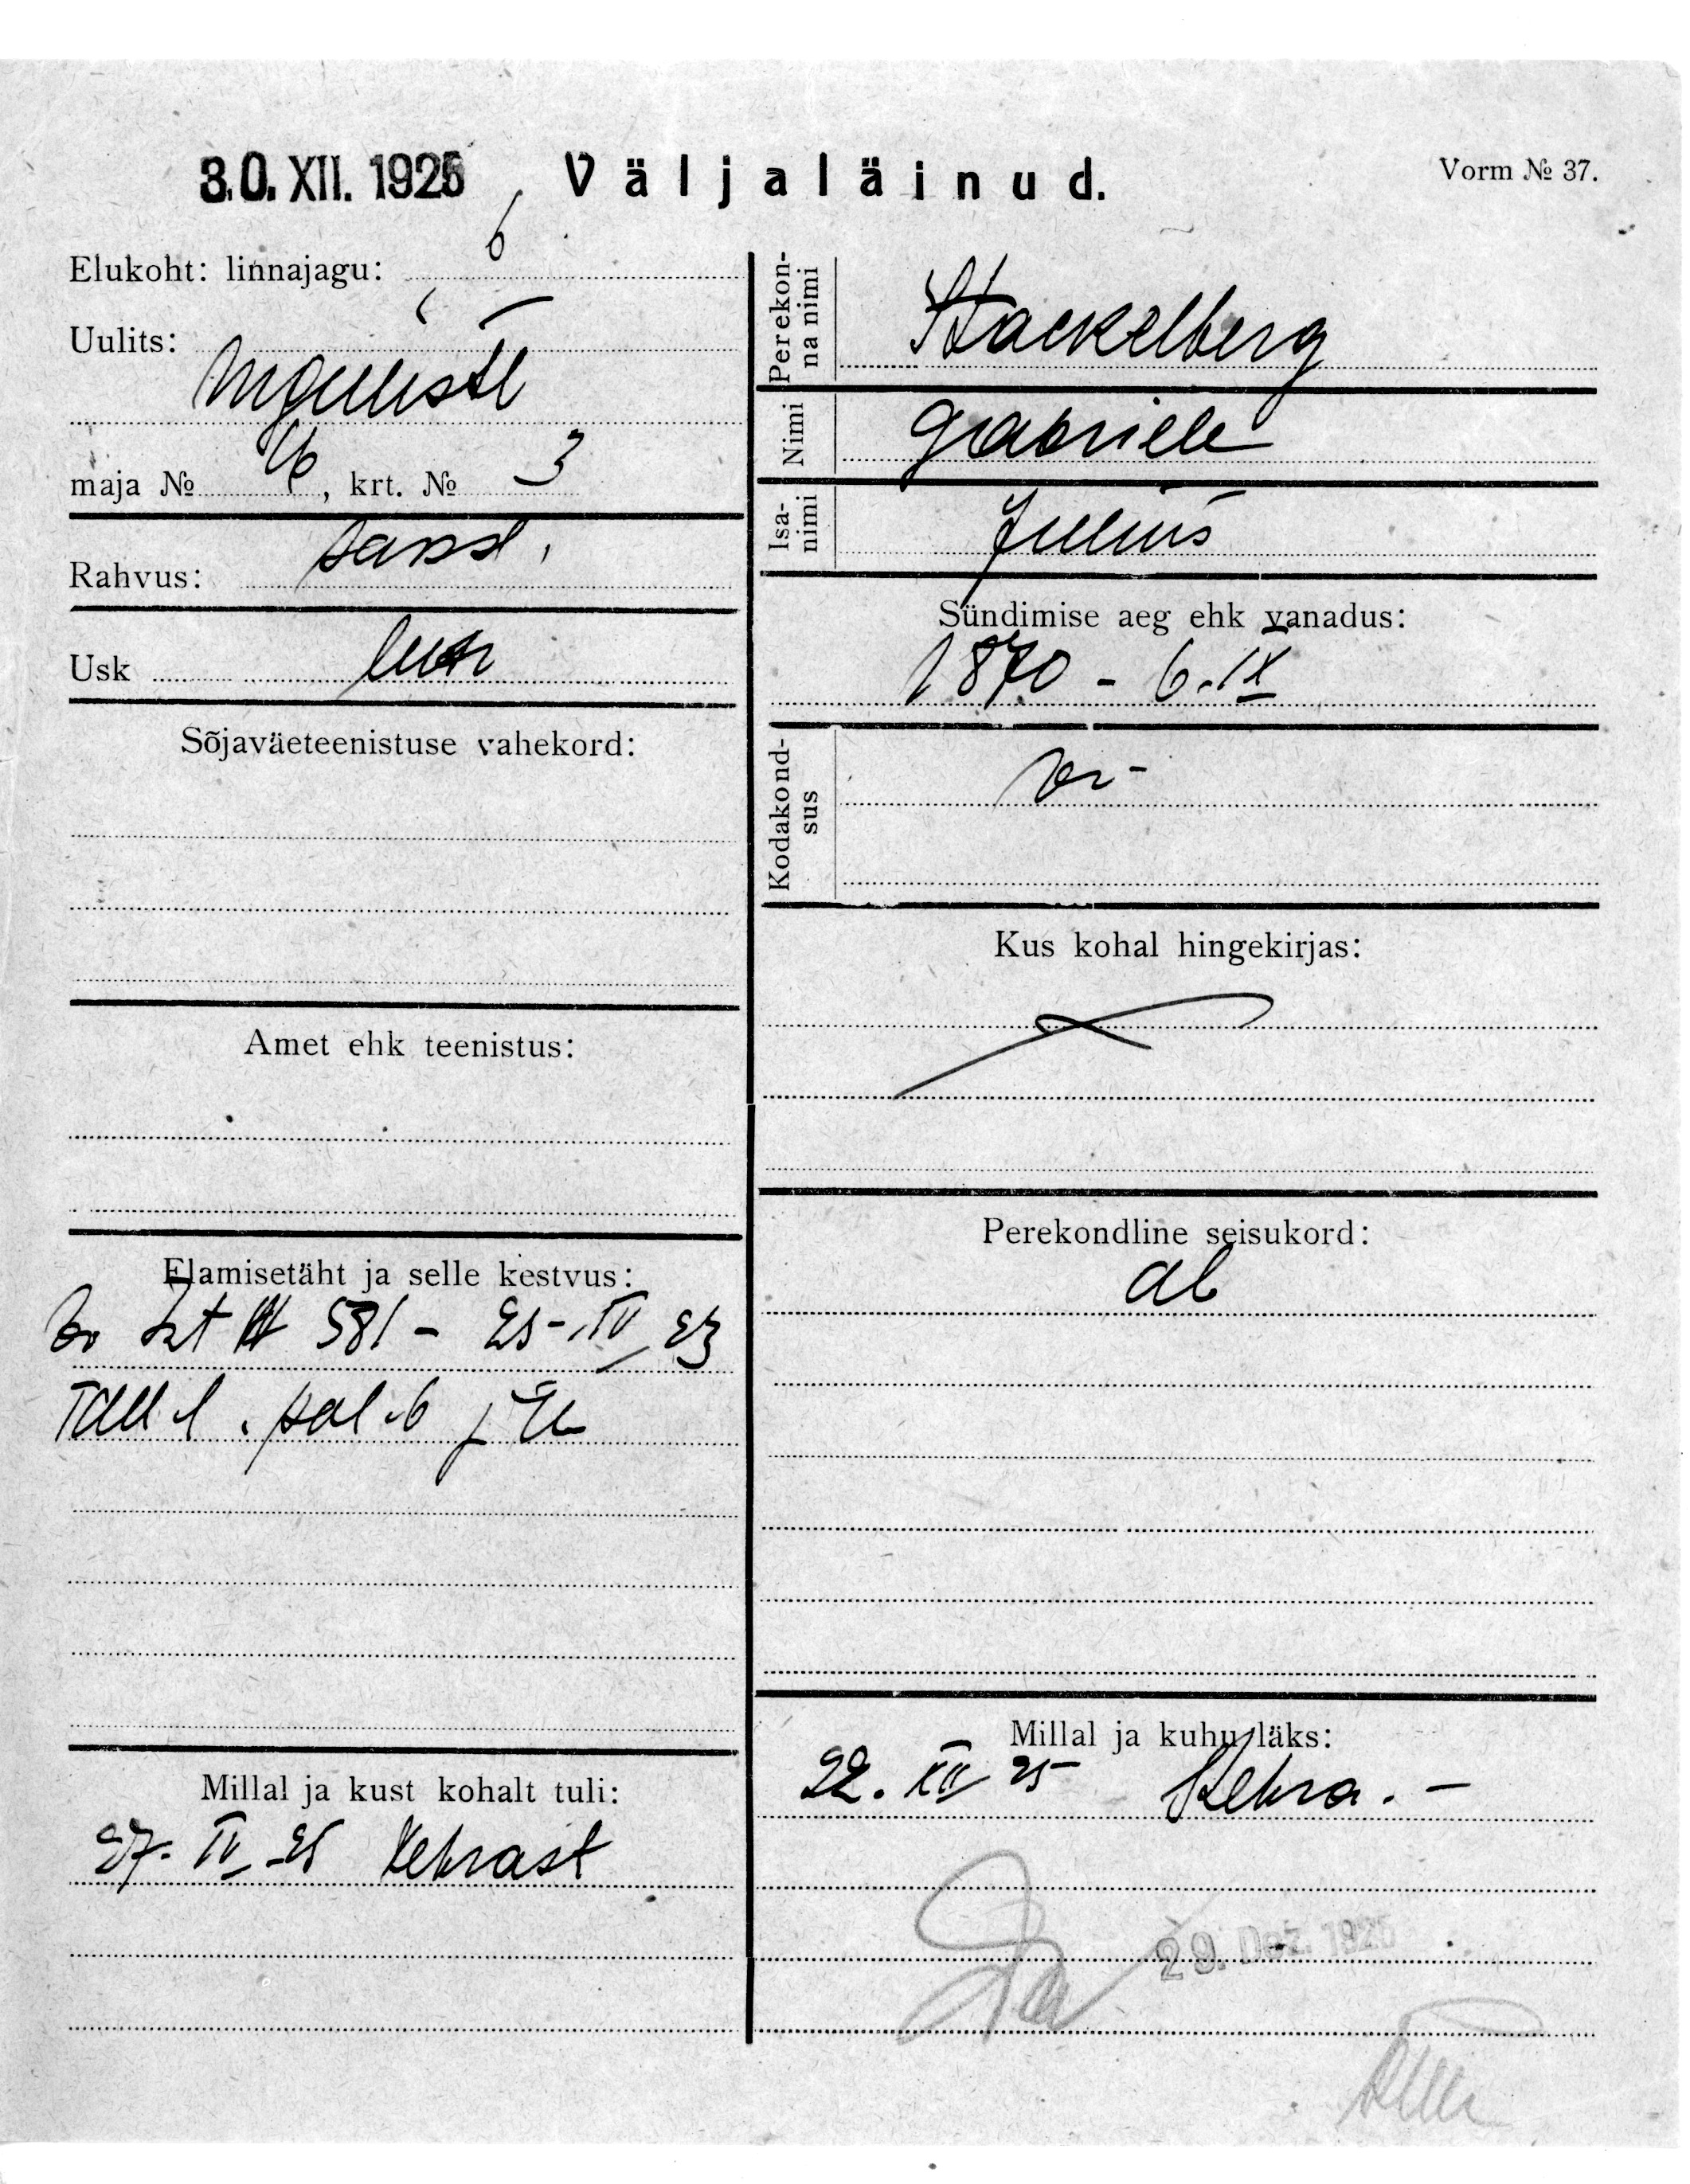 30. XII. 1925
Väljaläinud.
Vorm № 37.
Elukoht: linnajagu: 6
Uulits:
maja № 6, krt. № 3
Rahvus: saksl.
Usk lutr
Sõjaväeteenistuse vahekord:
Amet ehk teenistus:
Elamisetäht ja selle kestvus:
581 - 25-IV 23
Tall l. pol. 6 j
Millal ja kust kohalt tuli:
27. IV 25 Kehrast
Perekonna nimi Stackelberg
Nimi Gabriele
Isanimi Julius
Sündimise aeg ehk vanadus:
1870 - 6.IX
Kodakondsus
Kus kohal hingekirjas:
Perekondline seisukord:
ab
Millal ja kuhu läks:
22. XII 25 Kehra. -
29. Dez. 1925